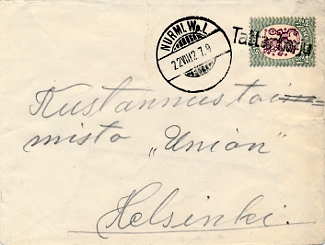 NURMI. W:L.
2.2VIII12 7.9
Kustannustoi=
misto "Union"
Helsinki.